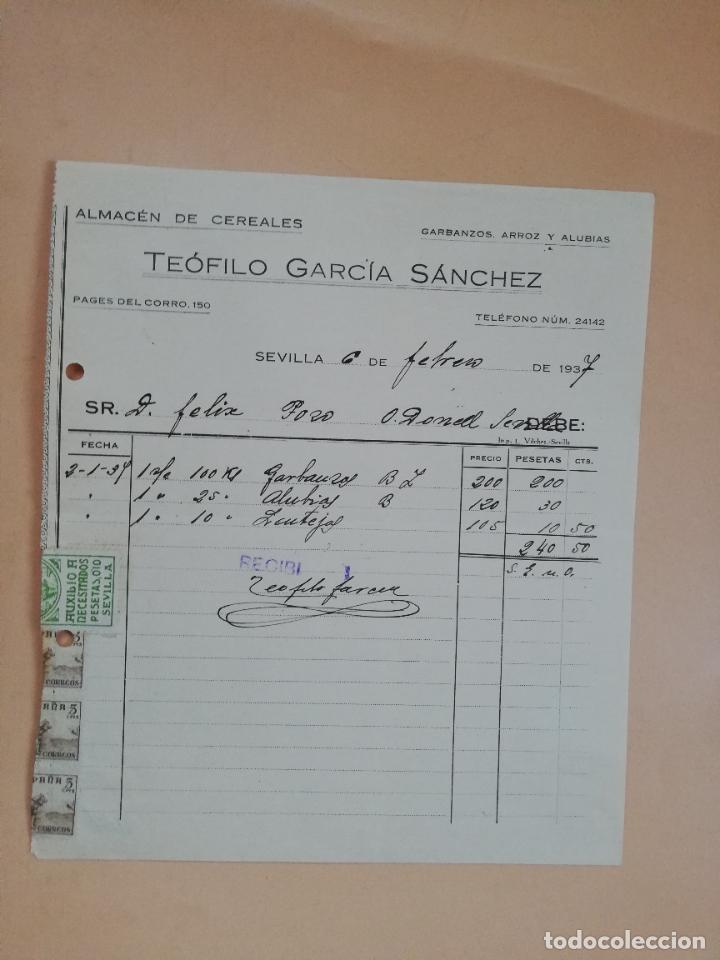 ALMACÉN DE CEREALES
GARBANZOS, ARROZ Y ALUBIAS
TEÓFILO GARCÍA SÁNCHEZ
PAGES DEL CORRO, 150
TELÉFONO NÚM. 24142
SEVILLA 6 DE febrero DE 1937
SR. D. felix Pozo O. Donell Sevilla DEBE:
Imp. L. Vilches.-Sevilla
FECHA PRECIO PESETAS CTS.
2-1-37 1 100 Ks Garbanzos B L 200 200
" 1 " 25 " Alubias B 120 30
" 1 " 10 " Lentejas 105 10 50
240 50
RECIBI
S. E. u. O.
Teofilo Garcia
AUXILIO A
NECESITADOS
PESETAS 0,10
SEVILLA
5
CORREOS
PAÑA 5
CTS
CORREOS
PAÑA 5
CTS
CORREOS
todocoleccion